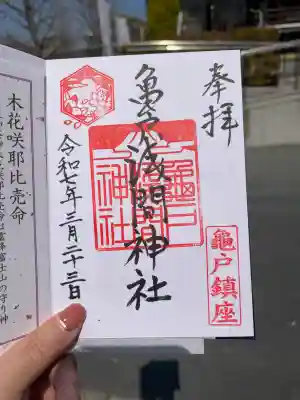 奉拝
亀戸浅間神社
令和七年三月二十三日
亀戸
神社
龜戸鎮座
木花咲耶比売命